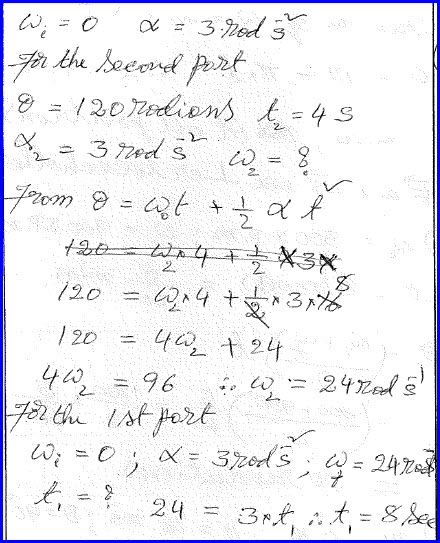 ωᵢ = 0 α = 3 rad s⁻²
For the second part
θ = 120 radians t₂ = 4 s
α₂ = 3 rad s⁻² ω₂ = ?
From θ = ω₀t + 1/2 α t²
120 = ω₂ × 4 + 1/2 × 3 ×
120 = ω₂ × 4 + 1/2 × 3 × 16 8
120 = 4ω₂ + 24
4ω₂ = 96 ∴ ω₂ = 24 rad s⁻¹
For the 1st part
ωᵢ = 0 ; α = 3 rad s⁻² ; ω_f = 24 rad
t₁ = ? 24 = 3 × t₁ ∴ t₁ = 8 sec